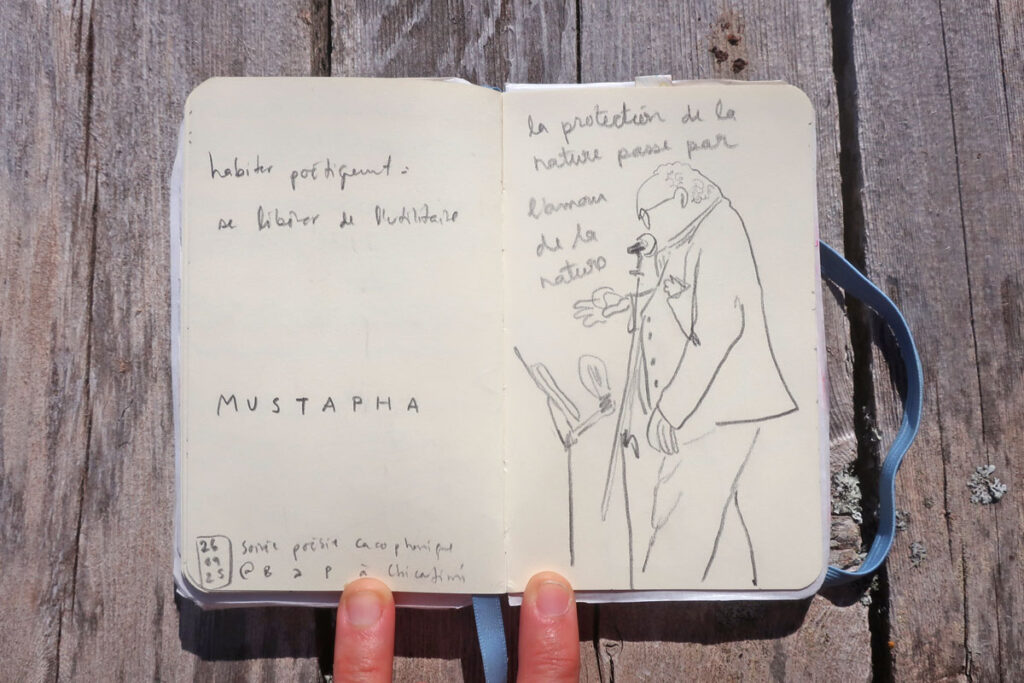 habiter poétiquement :
se libérer de l'utilitaire
MUSTAPHA
26
09
25
Soirée poésie cacophonique
@ B a P à
la protection de la
nature passe par
l'amour
de la
nature